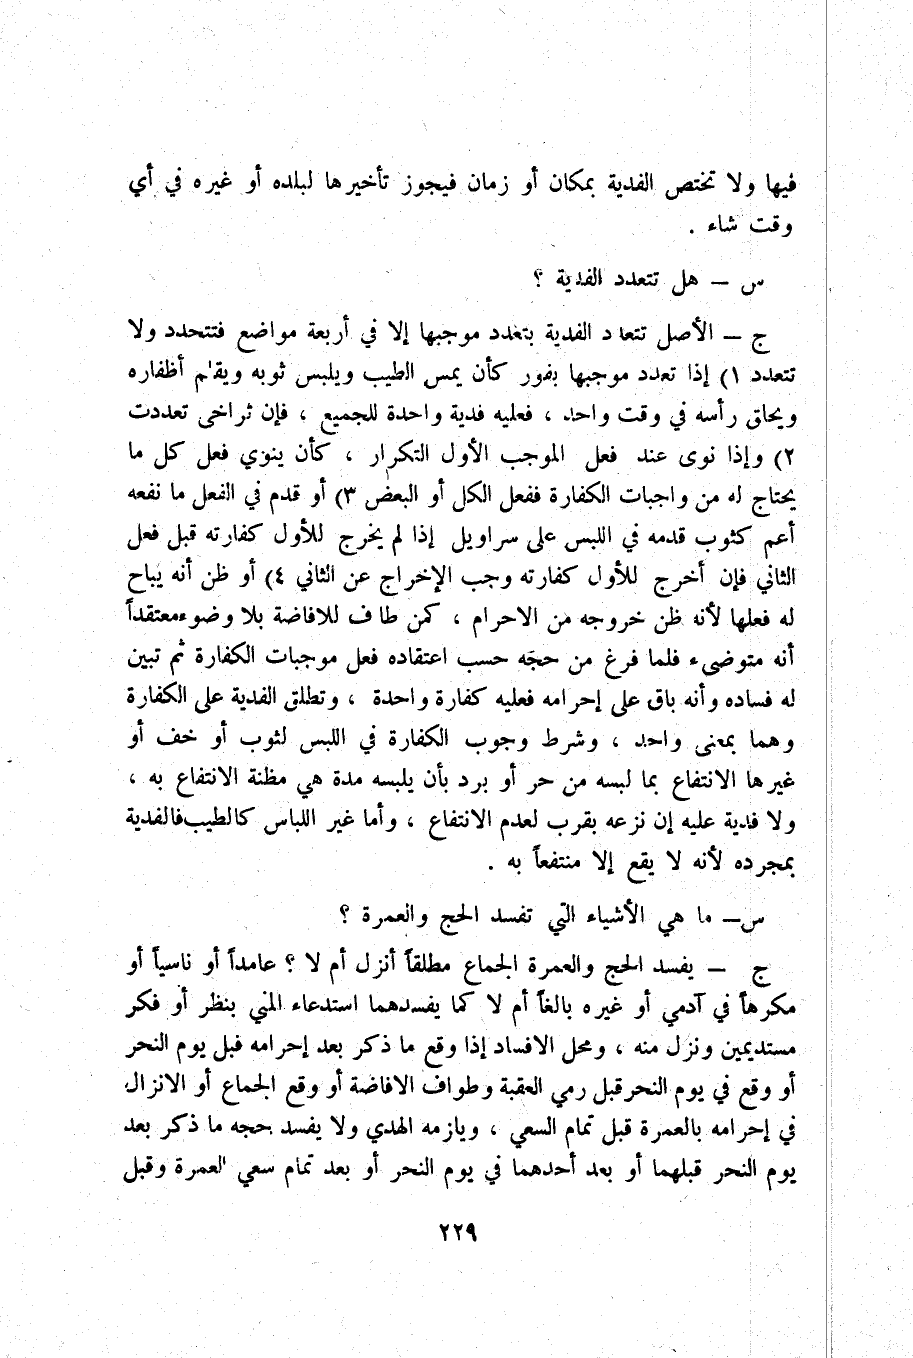 فيها ولا تختص الفدية بمكان أو زمان فيجوز تأخيرها لبلده أو غيره في أي
وقت شاء .
س — هل تتعدد الفدية ؟
ج — الأصل تتعدد الفدية بتعدد موجبها إلا في أربعة مواضع فتتحدد ولا
تتعدد ١) إذا تعدد موجبها بفور كأن يمس الطيب ويلبس ثوبه ويقلم أظفاره
ويحلق رأسه في وقت واحد ، فعليه فدية واحدة للجميع ، فإن تراخى تعددت
٢) وإذا نوى عند فعل الموجب الأول التكرار ، كأن ينوي فعل كل ما
يحتاج له من واجبات الكفارة ففعل الكل أو البعض ٣) أو قدم في الفعل ما نفعه
أعم كثوب قدمه في اللبس على سراويل إذا لم يخرج للأول كفارته قبل فعل
الثاني فإن أخرج للأول كفارته وجب الإخراج عن الثاني ٤) أو ظن أنه يباح
له فعلها لأنه ظن خروجه من الاحرام ، كمن طاف للافاضة بلا وضوء معتقداً
أنه متوضىء فلما فرغ من حجه حسب اعتقاده فعل موجبات الكفارة ثم تبين
له فساده وأنه باق على إحرامه فعليه كفارة واحدة ، وتطلق الفدية على الكفارة
وهما بمعنى واحد ، وشرط وجوب الكفارة في اللبس لثوب أو خف أو
غيرها الانتفاع بما لبسه من حر أو برد بأن يلبسه مدة هي مظنة الانتفاع به ،
ولا فدية عليه إن نزعه بقرب لعدم الانتفاع ، وأما غير اللباس كالطيب فالفدية
بمجرده لأنه لا يقع إلا منتفعاً به .
س— ما هي الأشياء التي تفسد الحج والعمرة ؟
ج — يفسد الحج والعمرة الجماع مطلقاً أنزل أم لا ؟ عامداً أو ناسياً أو
مكرهاً في آدمي أو غيره بالغاً أم لا كما يفسدهما استدعاء المني بنظر أو فكر
مستديمين ونزل منه ، ومحل الافساد إذا وقع ما ذكر بعد إحرامه قبل يوم النحر
أو وقع في يوم النحر قبل رمي العقبة وطواف الافاضة أو وقع الجماع أو الانزال
في إحرامه بالعمرة قبل تمام السعي ، ويلزمه الهدي ولا يفسد حجه ما ذكر بعد
يوم النحر قبلهما أو بعد أحدهما في يوم النحر أو بعد تمام سعي العمرة وقبل
٢٢٩